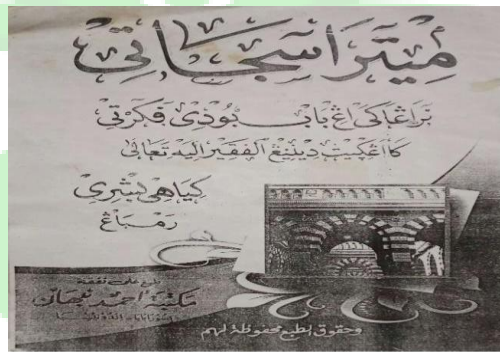 مِيتْرَا سَجَاتِيْ
نَرَاڠَاكَىْ اِڠْ بَابْ بُوْدِىْ فَكَرْتِىْ
كَاَڠْڮِيتْ دَيْنِيْڠْ الفقير اليه تعالى
كياهى بشرى
رمباڠ
طبع على نفقة
مكتبة احمد نبهان
وحقوق الطبع محفوظة لهم